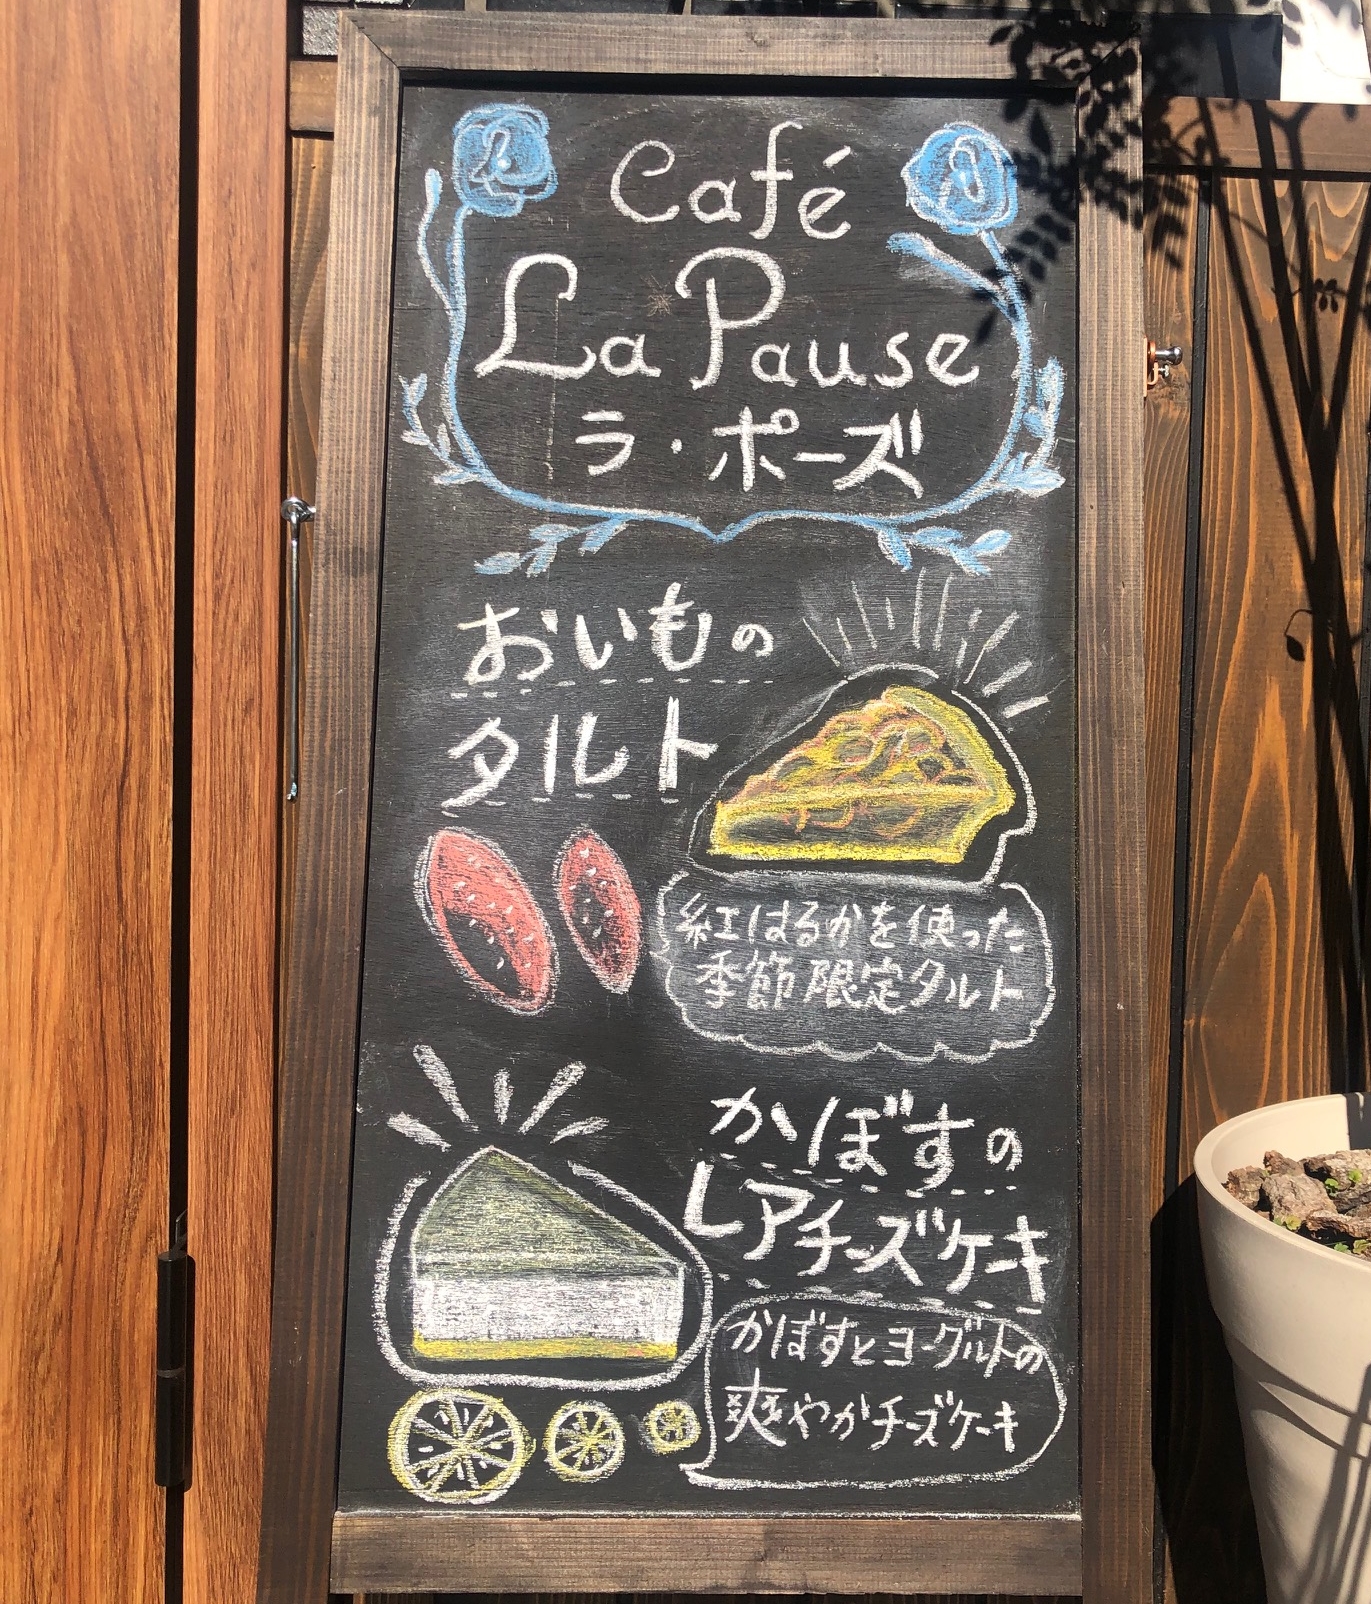 Café
La Pause
ラ・ポーズ
おいもの
タルト
紅はるかを使った
季節限定タルト
かぼすの
レアチーズケーキ
かぼすとヨーグルトの
爽やかチーズケーキ